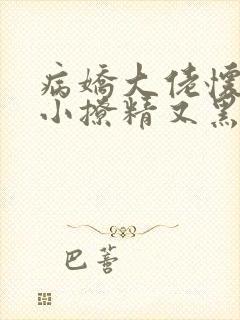 病娇大佬怀
小撩精又黑
巴蕾